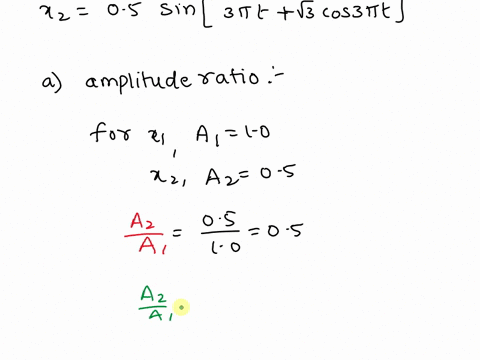 x₂ = 0.5 sin[ 3πt + √3 cos3πt]
a) amplitude ratio :-
for x₁, A₁ = 1.0
x₂, A₂ = 0.5
A₂/A₁ = 0.5/1.0 = 0.5
A₂/A₁